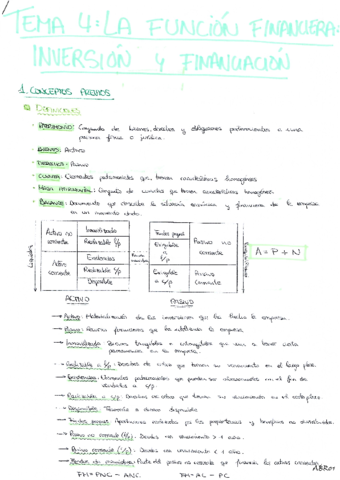 TEMA 4: LA FUNCIÓN FINANCIERA:
INVERSIÓN Y FINANCIACIÓN
1. CONCEPTOS PREVIOS
Definiciones
PATRIMONIO: Conjunto de bienes, derechos y obligaciones pertenecientes a una
persona física o jurídica.
Activo
CUENTA: Elementos patrimoniales que tienen características homogéneas
MASA PATRIMONIAL: Conjunto de cuentas que tienen características homogéneas.
BALANCE: Documento que la situación económica y financiera de la empresa
en un momento dado.
Activo no corriente
Inmovilizado
Realizable l/p
Fondos propios
Exigible l/p
Pasivo no corriente
A = P + N
Activo corriente
Existencias
Realizable c/p
Disponible
Exigible a c/p
Pasivo Corriente
ACTIVO
PASIVO
→ Activo: Materialización de las inversiones que ha la empresa.
→ Pasivo: Recursos financieros que ha la empresa.
→ Inmovilizado: Bienes tangibles o intangibles que van a
permanencia en la empresa.
→ Realizable a l/p: Derechos de cobro que tienen su vencimiento en el largo plazo.
→ Existencias: Elementos patrimoniales que en el fin de
→ Realizable a c/p: Derechos de cobro que tienen su vencimiento en el corto plazo
→ Disponible: Tesorería o dinero disponible
→ Fondos propios: Aportaciones realizadas por los propietarios y beneficios no distribuidos.
→ Pasivo no corriente (l/p): Deudas con vencimiento > 1 año.
→ Pasivo corriente (c/p): Deudas con vencimiento < 1 año.
→ Fondo de maniobra: Parte del pasivo no corriente que financia el activo corriente
FM = PNC - ANC
FM = AC - PC